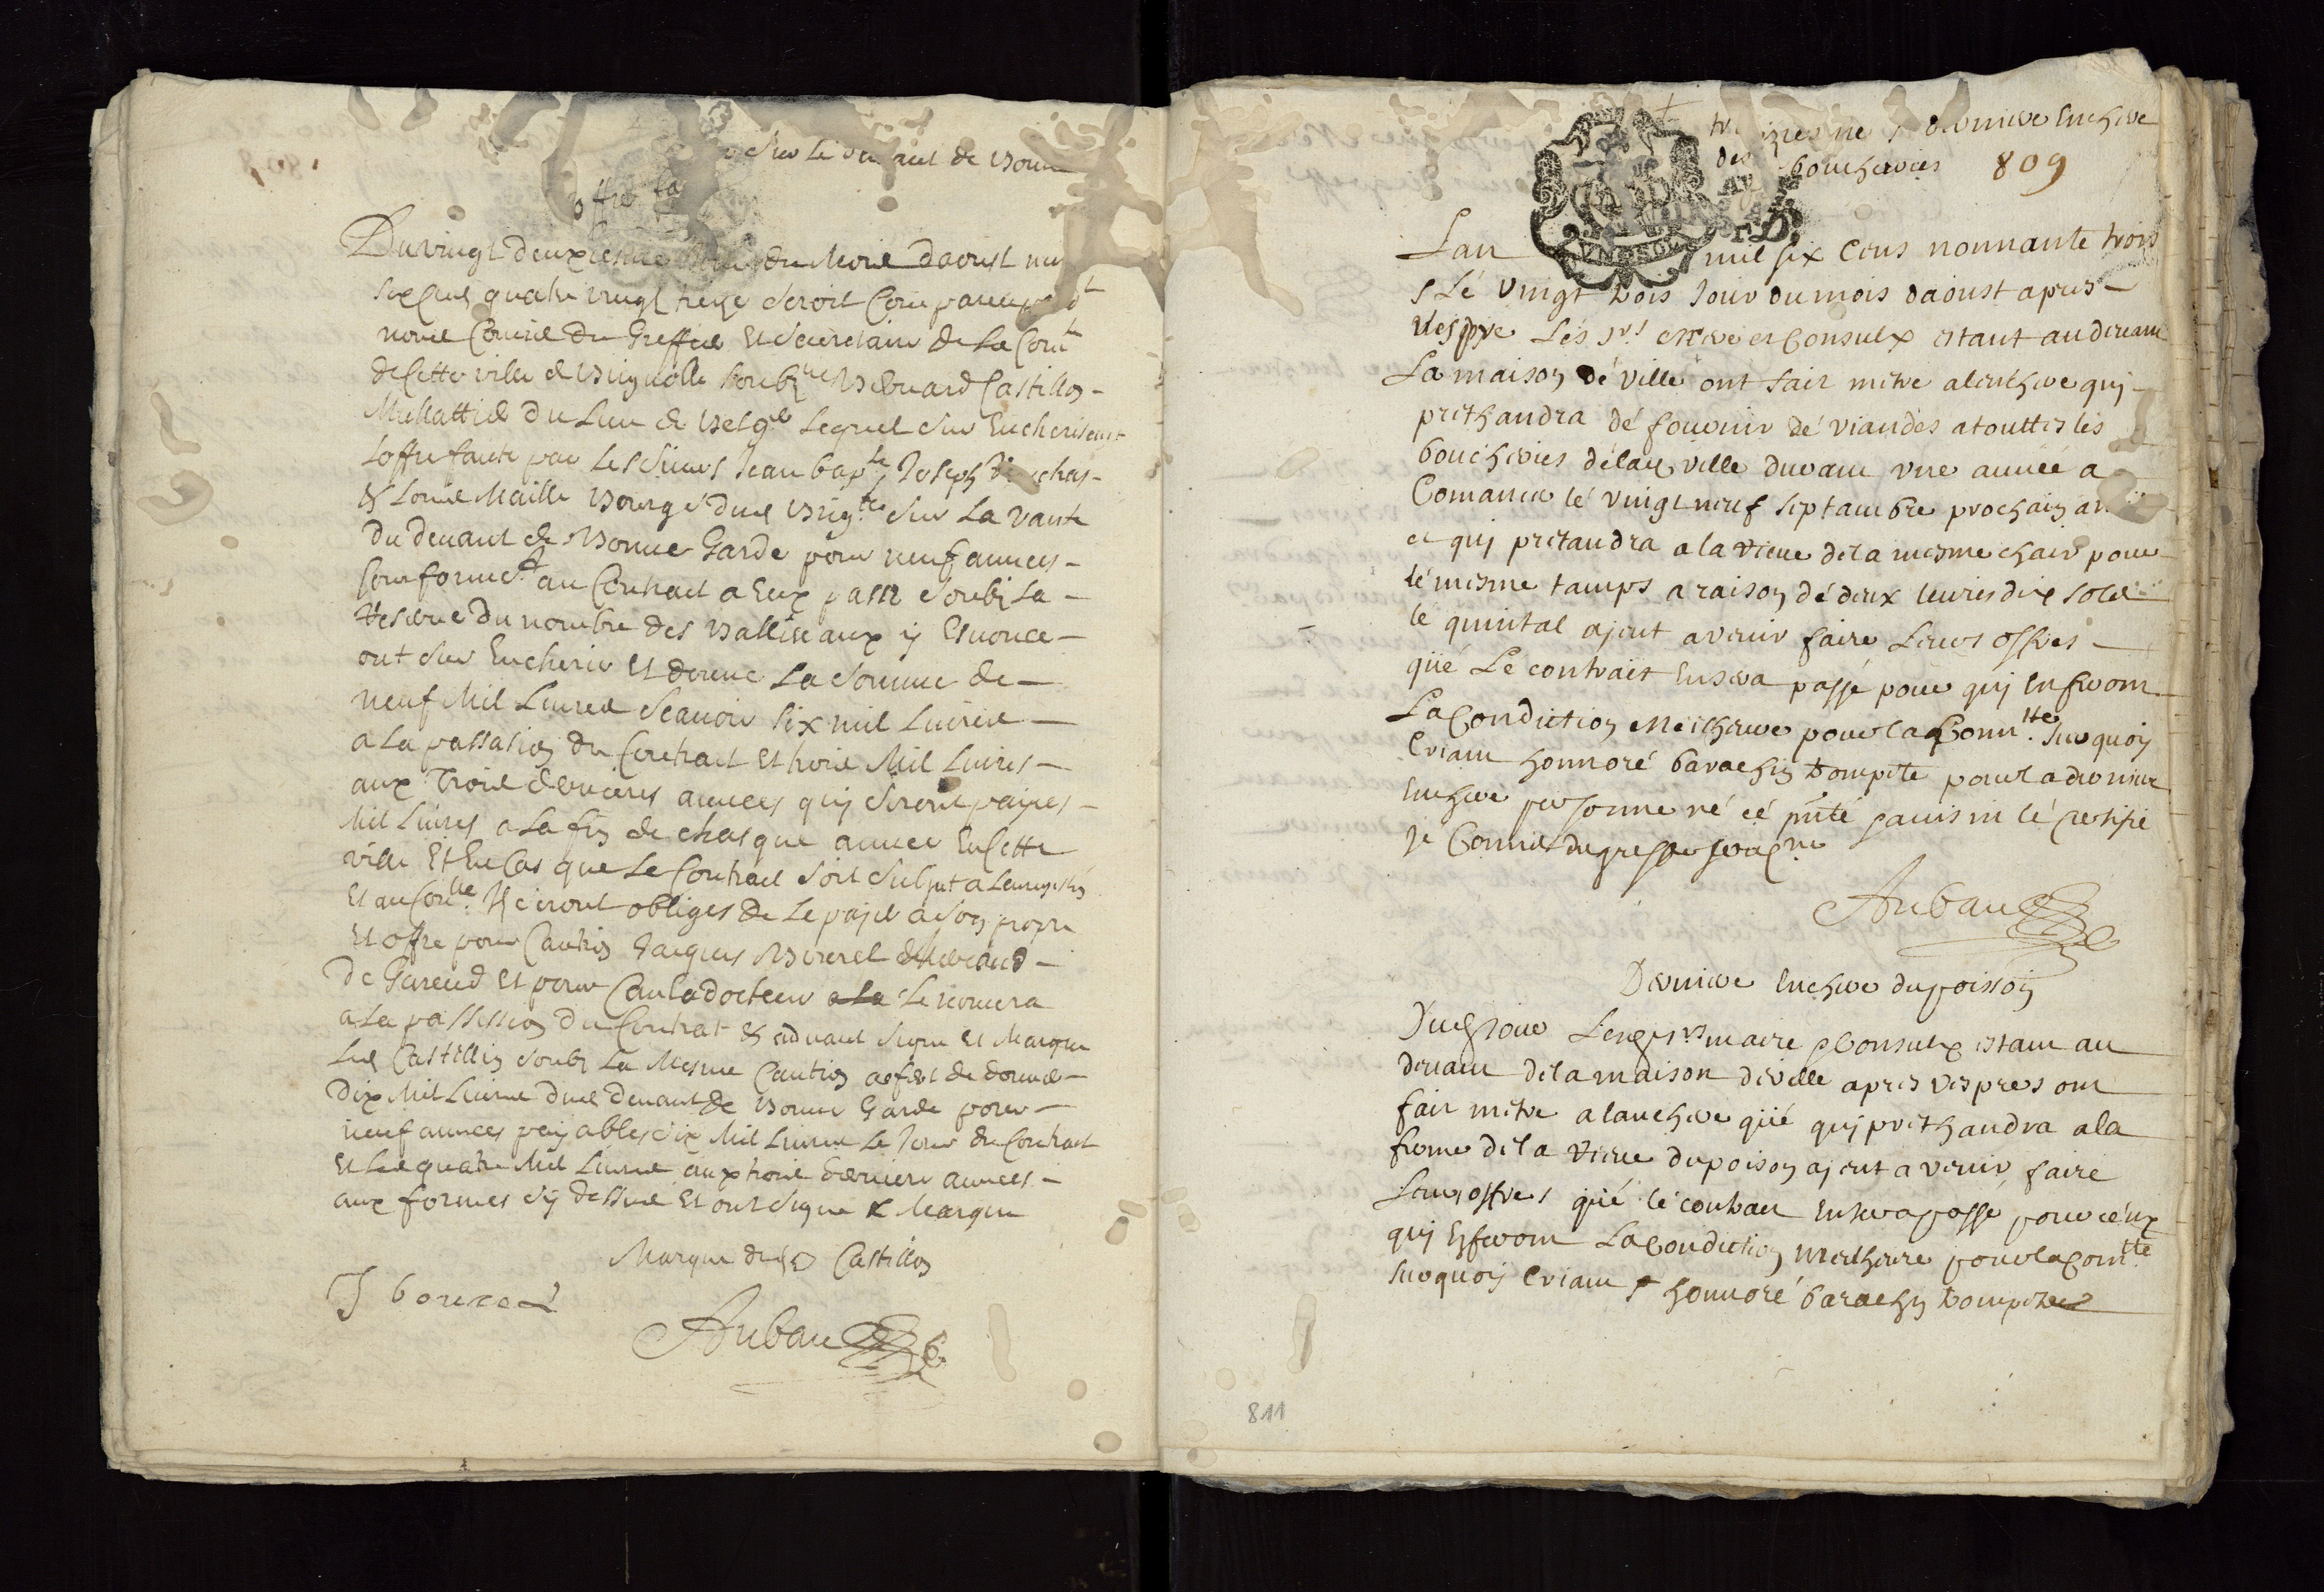 sur le devant de bonne
offre fa
Du vingt deuxiesme jour du mois daoust mil
six cens quatre vingt treize seroit comparu
nous Commis du Greffier et secretaire de la Com.te
de cette ville de brignolle soubz.né bernard Castillon
du lieu de belg.er lequel sur encherissent
loffre faite par les sieurs Jean bap.te Joseph
& Louis Maille bourgé dud brig.lle sur la vante
du devant de bonne Garde pour neuf annees
conformem.t au contract a eux passé soubz la
reserve du nombre des balliveaux y enonce
ont sur encherir et donne la somme de
neuf mil livres scavoir six mil livres
a la passation du contract et trois mil livres
aux trois dernieres annees quy seront payes
mil livres a la fin de chasque annee en cette
ville et en cas que le contract soit subject a lamort.
et au con.lle Ils seront obliges de le payer a son propre
et offre pour caution Jacques
de Gareoud et pour le nomera
a la passassion du contrat & advant signe et marque
led Castillon soubz la mesme caution a ofert de donner
dix mil livres dud devant de bonne Garde pour
neuf annees payables six mil livres le jour du contract
et les quatre mil livres aux trois derniere annees
aux formes sy dessus et ont signe & marque
Marque dud Castillon
J
Auban
derniere enchere
des boucheries 809
Lan mil six cens nonnante trois
& le vingt trois jour du mois daoust apres
vespre les s.rs maire et consulx estant au devant
la maison dé ville ont fait metre a lenchere qui
prethandra dé fournir dé viandes a touttes les
boucheries délad ville durant une année a
comancer lé vingt neuf septambre prochain
et quj pretandra a la rieue déla mesme chair pour
lé mesme tamps a raison dé deux livres dix solz
lé quintal ajent a venir faire leurs offres
qué lé contrait en sera passé pour quj en feront
la condiction meilheure pour la com.tte surquoy
criant honnoré barachin trompete pour la derniere
enchere personne né cé p.nté s'avis ni lé certifie
je commis du greffe soubz.né
Auban
Derniere enchere du poisson
Dud jour lesd s.rs maire & consulx estant au
devant déla maison déville apres vespres ont
fait metre a lanchere qué quj prethandra a la
ferme déla rieue du poison ajent a venir faire
leurs offres qué lé contrat en sera passé pour ceux
quj en feront la condiction meilheure pour la com.tte
surquoy criant honnoré barachin trompete
811